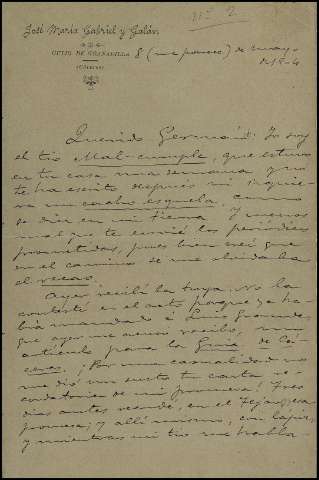 nº 2
José María Gabriel y Galán
GUIJO DE GRANADILLA
(CÁCERES)
8 (me parece) de mayo
de
Querido Germán: Yo soy
el tío Mal-cumple, que estuvo
en tu casa una semana y no
te ha escrito después ni siquie-
ra una esquela, como
se dice en mi tierra y menos
mal que te envié los periódicos
prometidos, pues bien creí que
en el camino se me olvidaba
el
Ayer recibí la tuya. No la
contesté en el acto porque ya ha-
bía mandado á Luis Grande,
que ayer me acusa recibo, un
artículo para la Guía de Cá-
ceres. ¡Por una casualidad no
me dió un susto tu carta re-
cordatoria de mi promesa! Tres
días antes recordé, en el Tejar, esa
promesa; y allí mismo, con lápiz,
y mientras mi tío me habla-